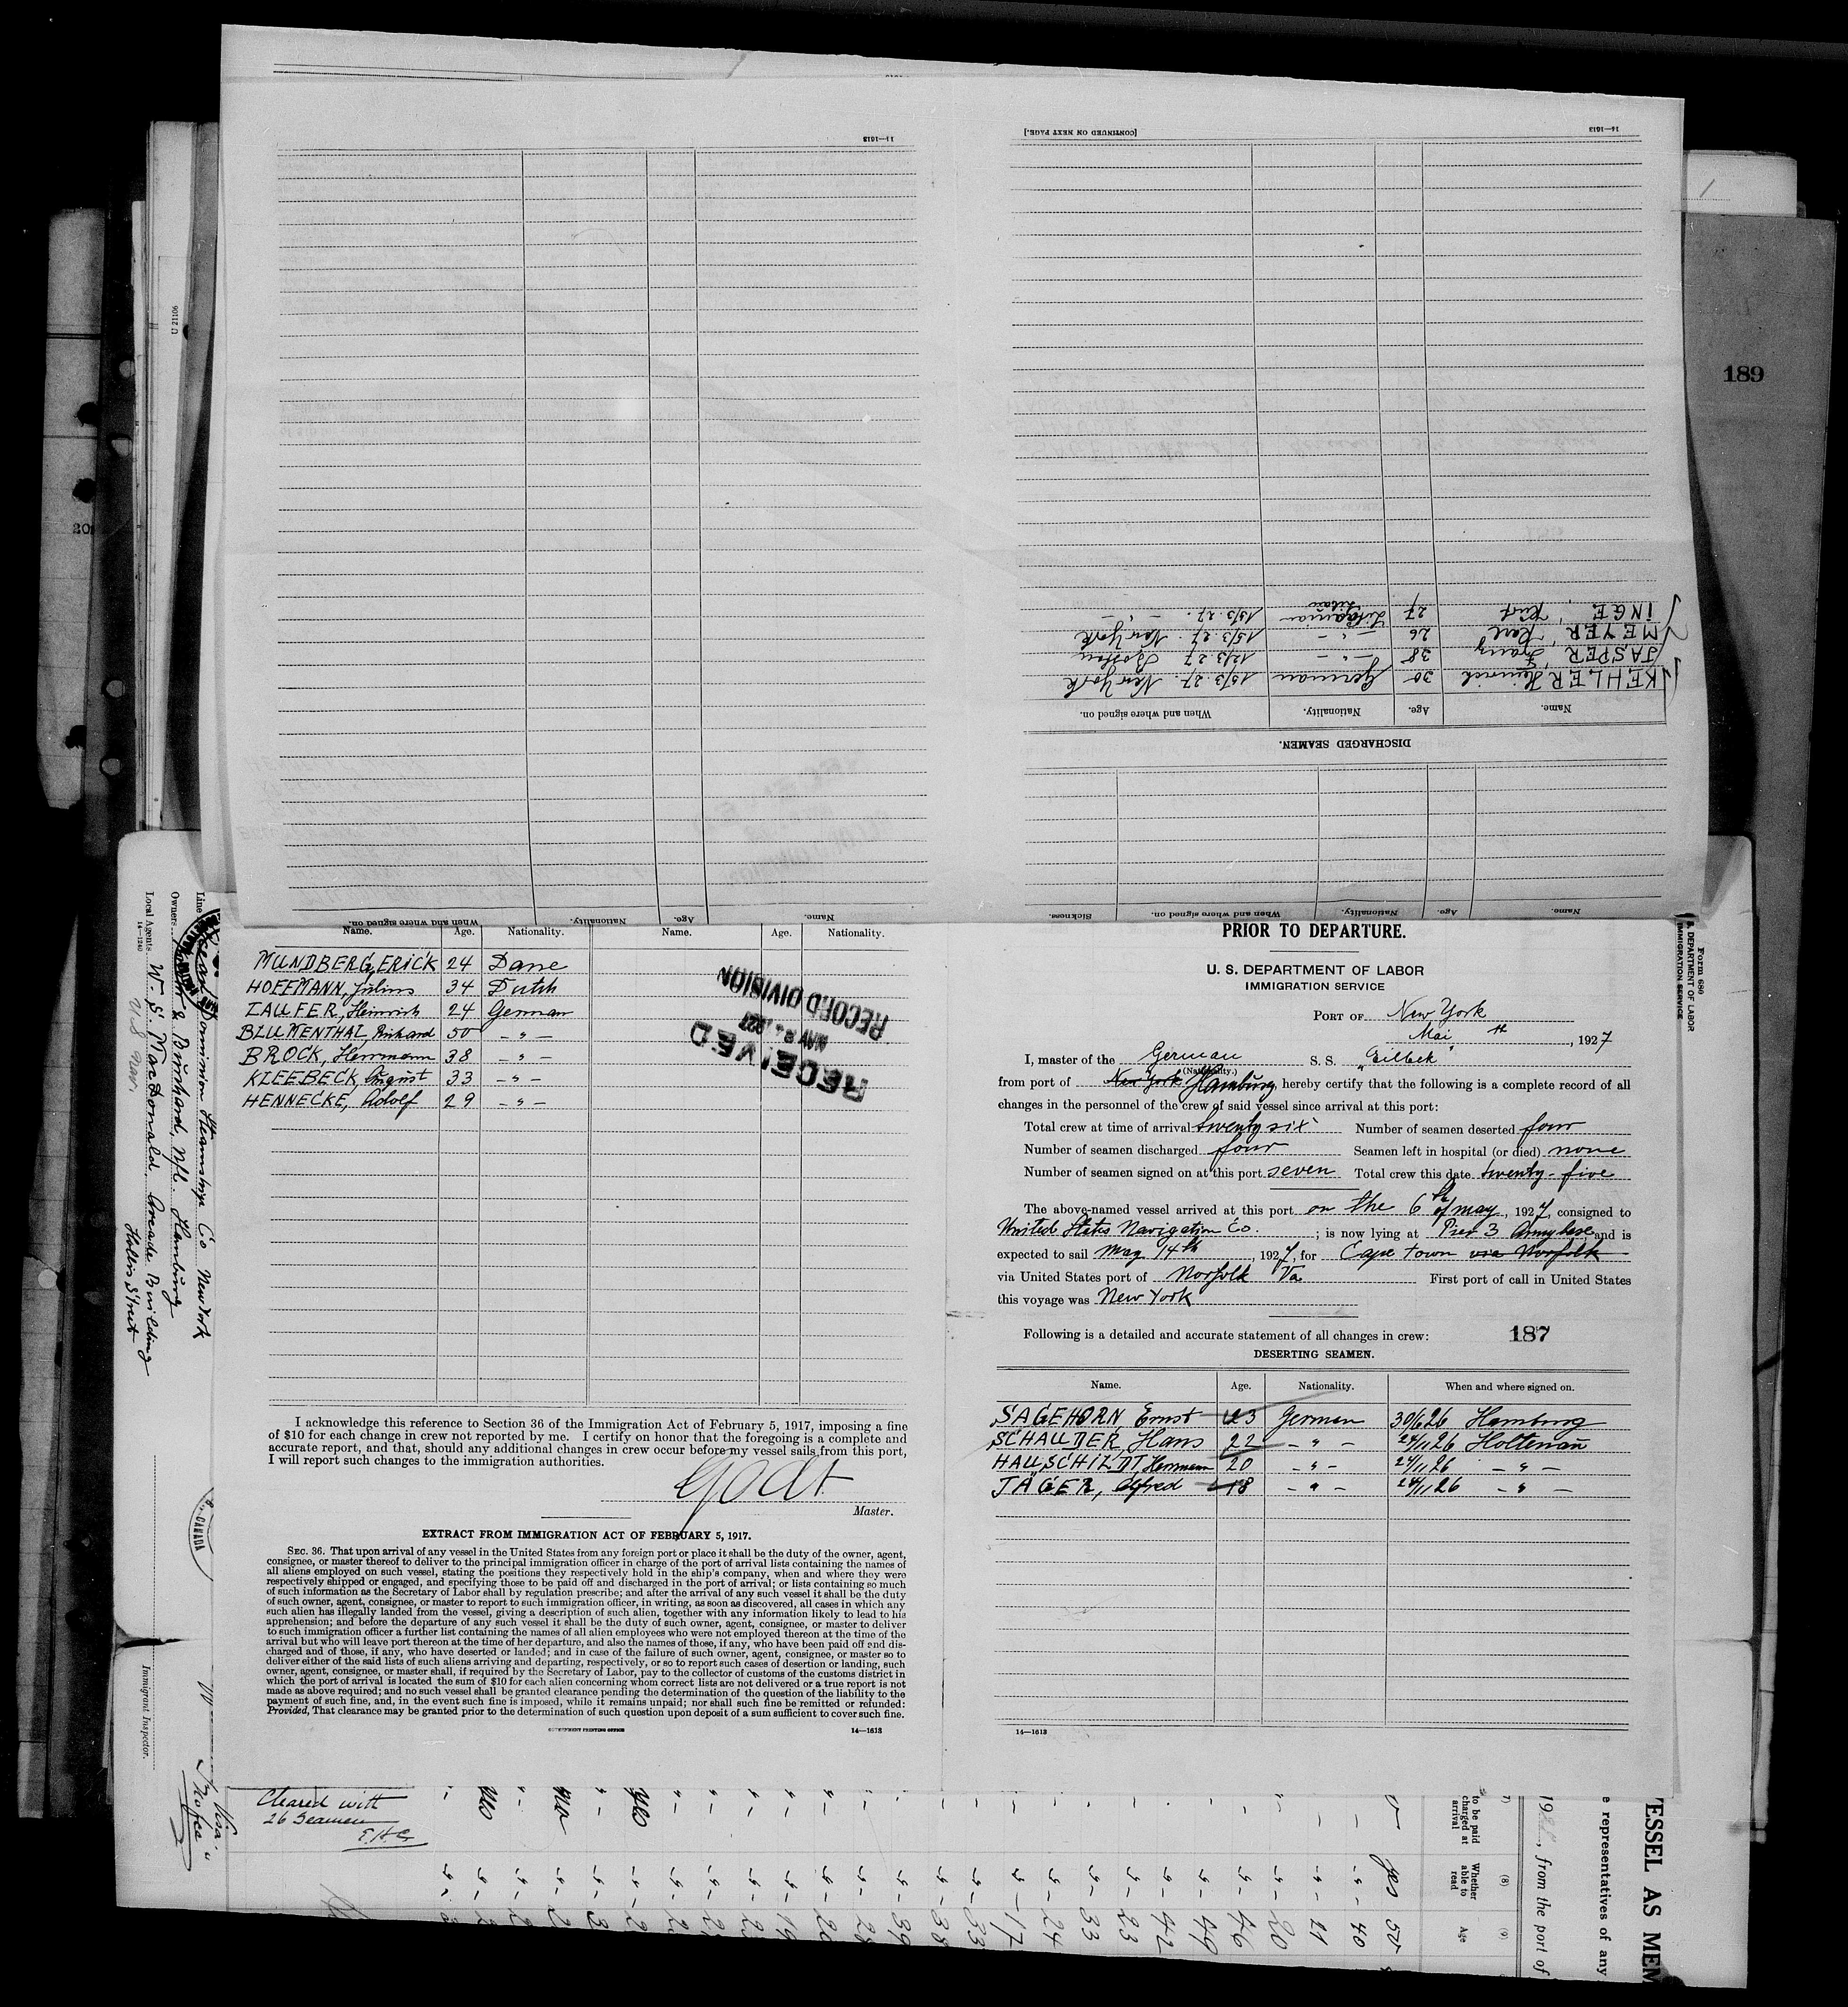 14—1613
[CONTINUED ON NEXT PAGE.]
11—1613
INGE, Kurt 27 15/3.27. — „ —
MEYER, Karl 26 — „ — 15/3.27. New York
JASPER, Franz 38 — „ — 12/3.27 Boston
KEHLER, Heinrich 30 German 15/3.27. New York
Name. Age. Nationality. When and where signed on.
DISCHARGED SEAMEN.
Name. Age. Nationality. When and where signed on. Sickness.
Name. Age. Nationality. When and where signed on.
189
U 21106
Name. Age. Nationality. Name. Age. Nationality.
MUNDBERG, ERICK 24 Dane
HOFFMANN, Julius 34 Dutch
LAUFER, Heinrich 24 German
BLUMENTHAL, Richard 50 — „ —
BROCK, Herrmann 38 — „ —
KLEEBECK, August 33 — „ —
HENNECKE, Adolf 29 — „ —
RECEIVED
MAY 24 1927
RECORD DIVISION
I acknowledge this reference to Section 36 of the Immigration Act of February 5, 1917, imposing a fine
of $10 for each change in crew not reported by me. I certify on honor that the foregoing is a complete and
accurate report, and that, should any additional changes in crew occur before my vessel sails from this port,
I will report such changes to the immigration authorities.
Master.
EXTRACT FROM IMMIGRATION ACT OF FEBRUARY 5, 1917.
SEC. 36. That upon arrival of any vessel in the United States from any foreign port or place it shall be the duty of the owner, agent,
consignee, or master thereof to deliver to the principal immigration officer in charge of the port of arrival lists containing the names of
all aliens employed on such vessel, stating the positions they respectively hold in the ship's company, when and where they were
respectively shipped or engaged, and specifying those to be paid off and discharged in the port of arrival; or lists containing so much
of such information as the Secretary of Labor shall by regulation prescribe; and after the arrival of any such vessel it shall be the duty
of such owner, agent, consignee, or master to report to such immigration officer, in writing, as soon as discovered, all cases in which any
such alien has illegally landed from the vessel, giving a description of such alien, together with any information likely to lead to his
apprehension; and before the departure of any such vessel it shall be the duty of such owner, agent, consignee, or master to deliver
to such immigration officer a further list containing the names of all alien employees who were not employed thereon at the time of the
arrival but who will leave port thereon at the time of her departure, and also the names of those, if any, who have been paid off and dis-
charged and of those, if any, who have deserted or landed; and in case of the failure of such owner, agent, consignee, or master so to
deliver either of the said lists of such aliens arriving and departing, respectively, or so to report such cases of desertion or landing, such
owner, agent, consignee, or master shall, if required by the Secretary of Labor, pay to the collector of customs of the customs district in
which the port of arrival is located the sum of $10 for each alien concerning whom correct lists are not delivered or a true report is not
made as above required; and no such vessel shall be granted clearance pending the determination of the question of the liability to the
payment of such fine, and, in the event such fine is imposed, while it remains unpaid; nor shall such fine be remitted or refunded:
Provided, That clearance may be granted prior to the determination of such question upon deposit of a sum sufficient to cover such fine.
GOVERNMENT PRINTING OFFICE 14—1613
PRIOR TO DEPARTURE.
U. S. DEPARTMENT OF LABOR
IMMIGRATION SERVICE
PORT OF New York
Mai th, 1927
I, master of the German S. S. "Eilbek"
(Nationality.)
from port of New York Hamburg, hereby certify that the following is a complete record of all
changes in the personnel of the crew of said vessel since arrival at this port:
Total crew at time of arrival twenty six Number of seamen deserted four
Number of seamen discharged four Seamen left in hospital (or died) none
Number of seamen signed on at this port seven Total crew this date twenty-five
The above-named vessel arrived at this port on the 6th of may, 1927, consigned to
United States Navigation Co.; is now lying at Pier 3 Army base, and is
expected to sail May 14th, 1927, for Cape Town via Norfolk
via United States port of Norfolk Va First port of call in United States
this voyage was New York
Following is a detailed and accurate statement of all changes in crew:
187
DESERTING SEAMEN.
Name. Age. Nationality. When and where signed on.
SAGEHORN, Ernst 23 German 30/6 26 Hamburg
SCHAUDER, Hans 22 — „ — 24/11 26 Holtenau
HAUSCHILDT, Herrmann 20 — „ — 24/11 26 — „ —
JÄGER, Alfred 18 — „ — 24/11 26 — „ —
14—1613
Form 680
U. S. DEPARTMENT OF LABOR
IMMIGRATION SERVICE
Line Ocean Dominion Steamship Co New York
Owners & Burchard, Nfl. Hamburg
Local Agents W. S. MacDonald Arcade Building
Hollis Street
14—1240
CANADA
Immigrant Inspector.
Cleared with
26 Seamen
ESSEL AS MEM
e representatives of any
from the port of
(7) to be paid charged at arrival
(8) Whether able to read
(9) Age
yes 50
40
21
20
46
49
42
23
33
24
17
33
38
39